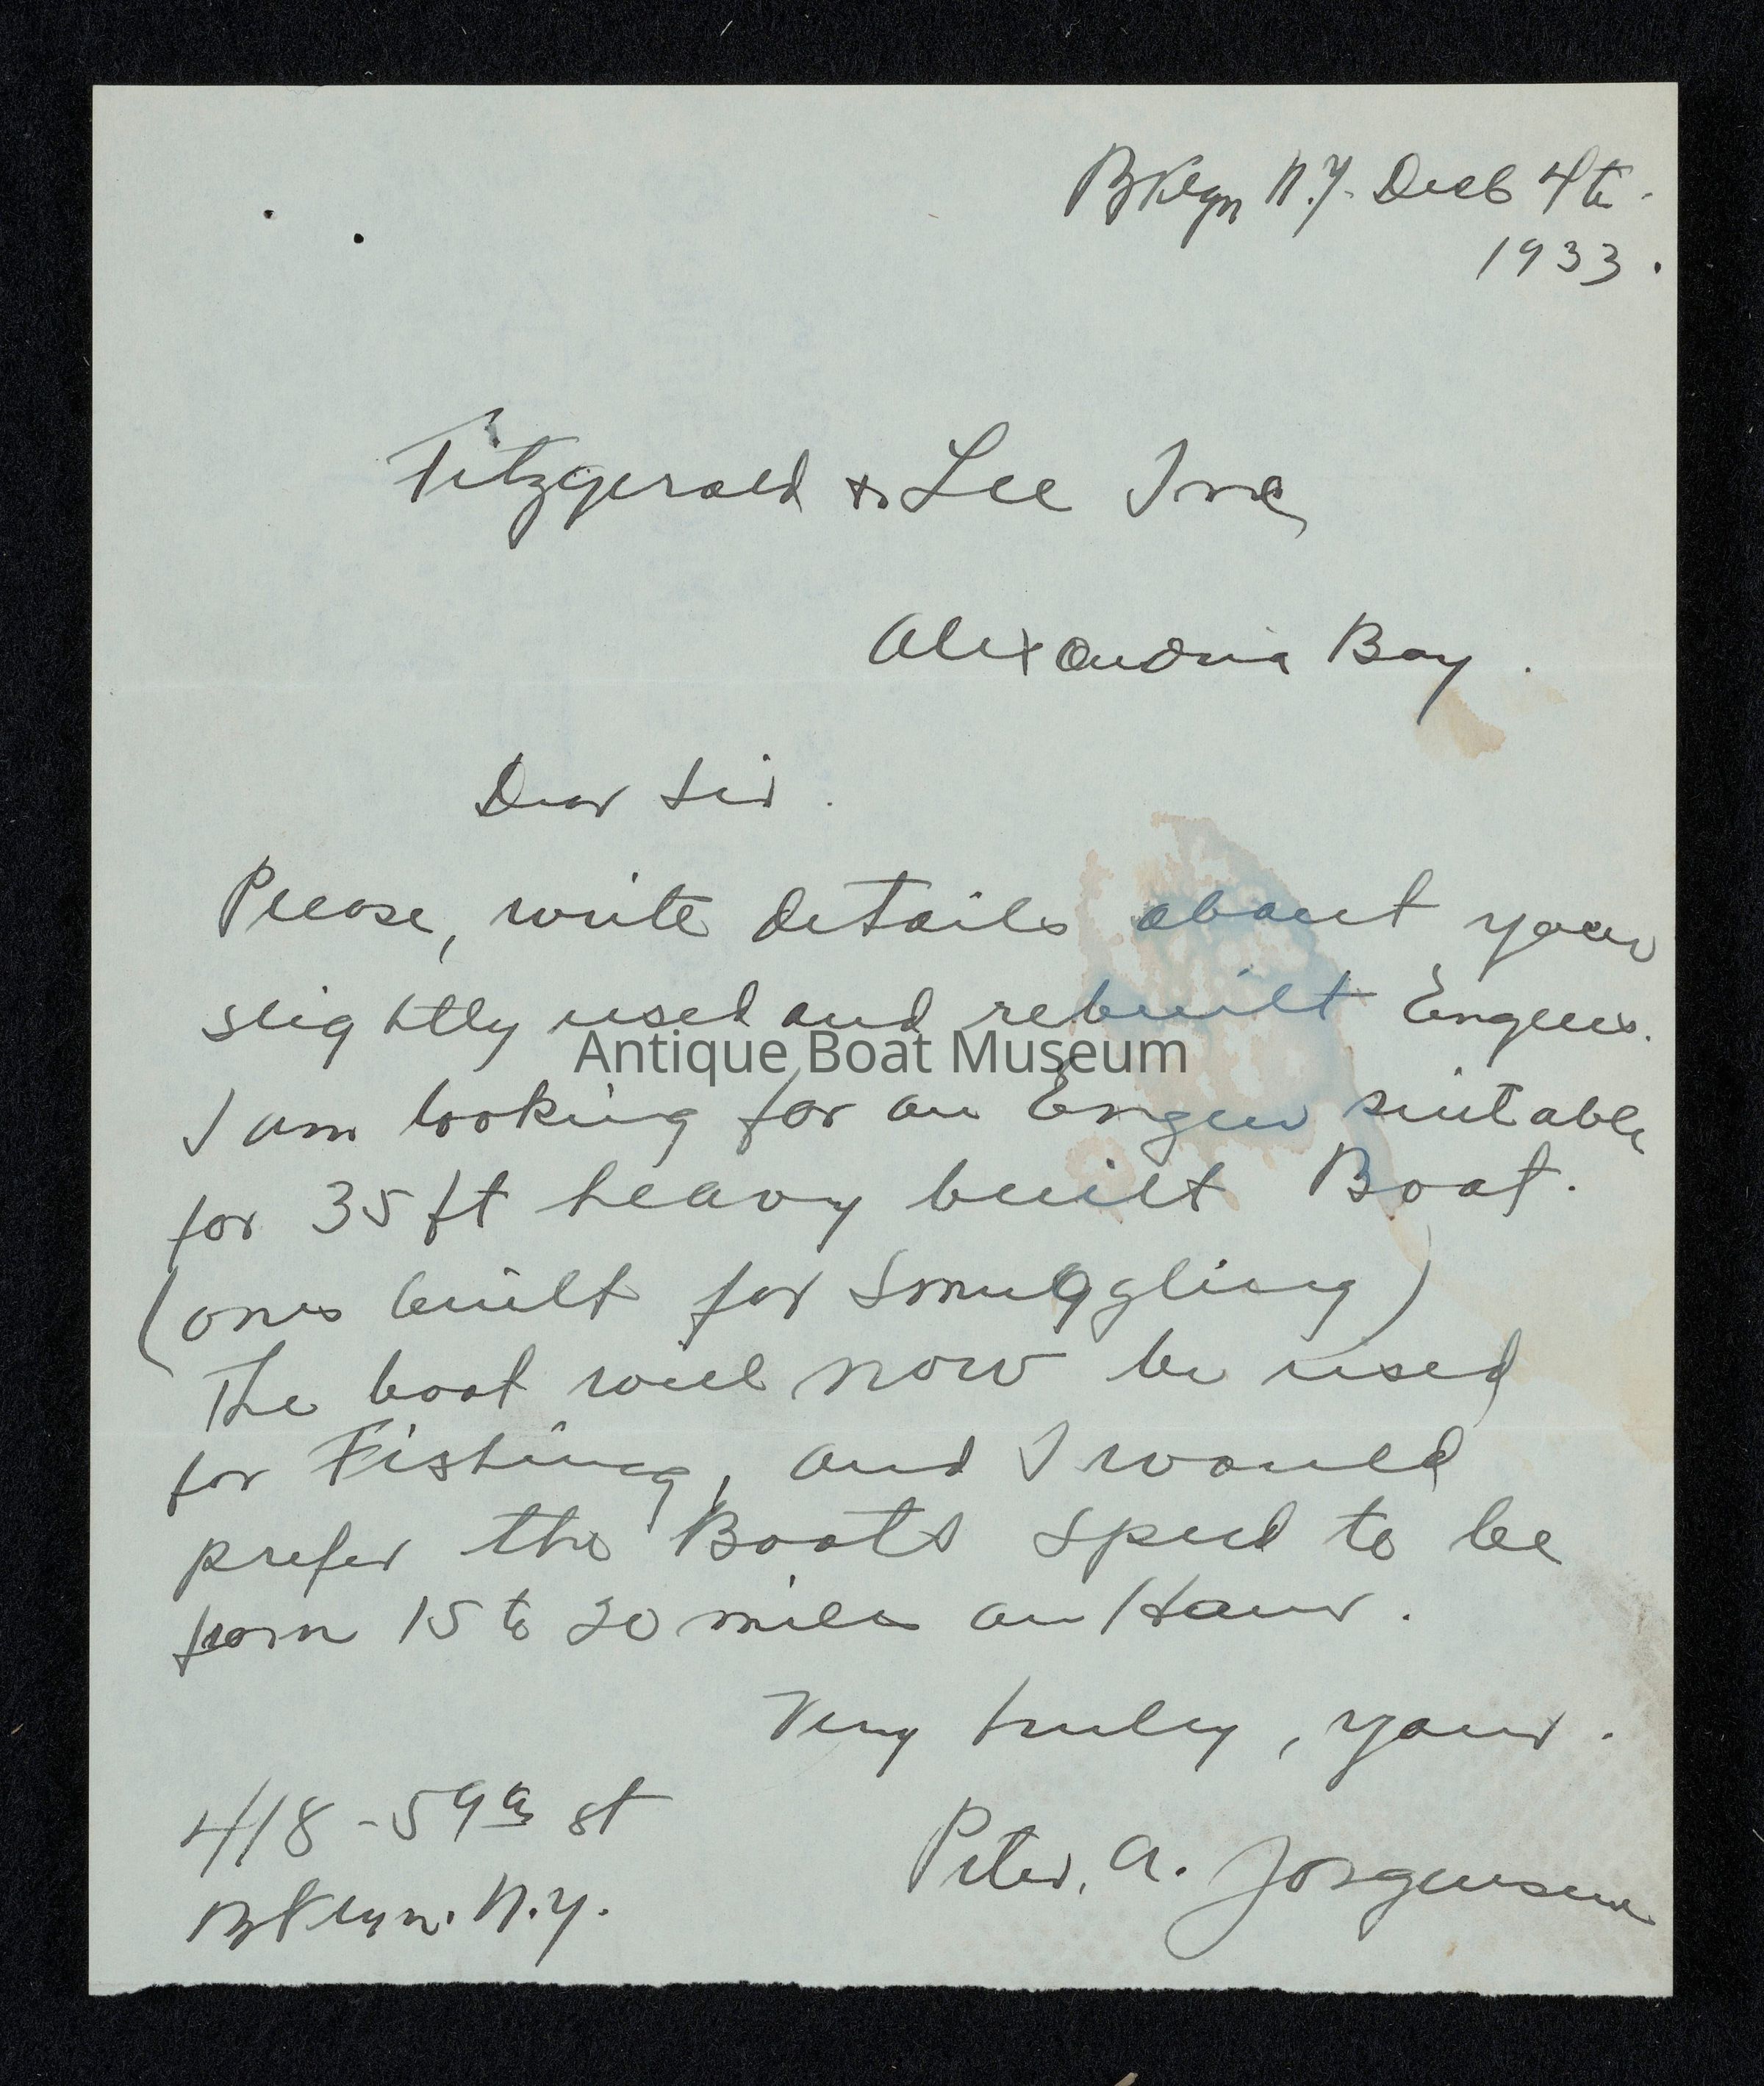 Bklyn N.Y. Decb 4th.
1933.
Fitzgerald & Lee Inc
Alexandria Bay.
Dear Sir.
Please, write details about your
slightly used and rebuilt Engines.
Antique Boat Museum
I am looking for an Engine suitable
for 35 ft heavy built Boat.
(ones built for Smuggling)
The boat will now be used
for Fishing, and I would
prefer the Boats speed to be
from 15 to 20 miles an Hour.
Very truly, yours.
418 - 59th st
Peter, A. Jorgensen
Bklyn. N.Y.